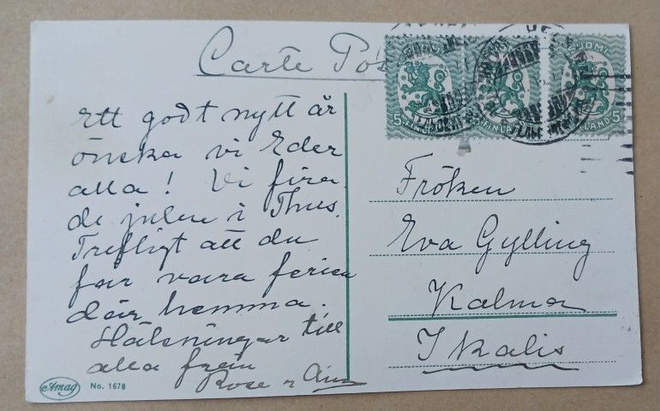 Carte Pos
SUOMI
FINLAND
5
Ett godt nytt år
önska vi Eder
alla! Vi fira
de julen i Thus.
Trefligt att du
får vara ferien
där hemma.
Hälsningar till
alla från
Fröken
Eva Gylling
Kalmar
Ikalis
Amag
No. 1678